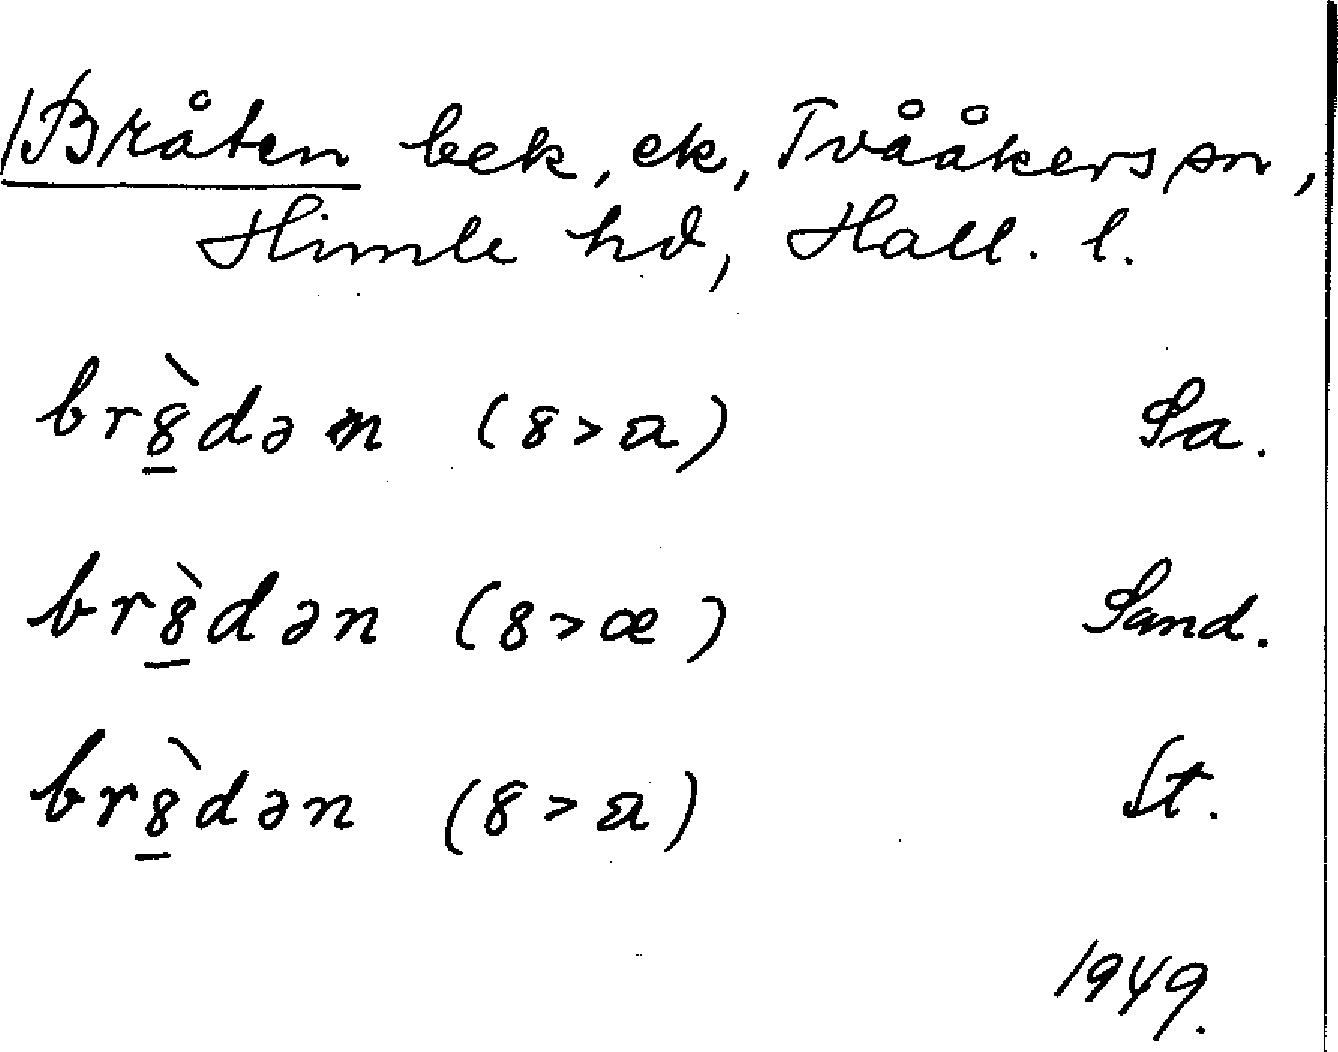 /Bråten bek, ek, Tvååkers sn,
Himle hd, Hall. l.
br8̲̀dən (8>a) Sa.
br8̲̀dən (8>æ) Sand.
br8̲̀dən (8>a) St.
1949.